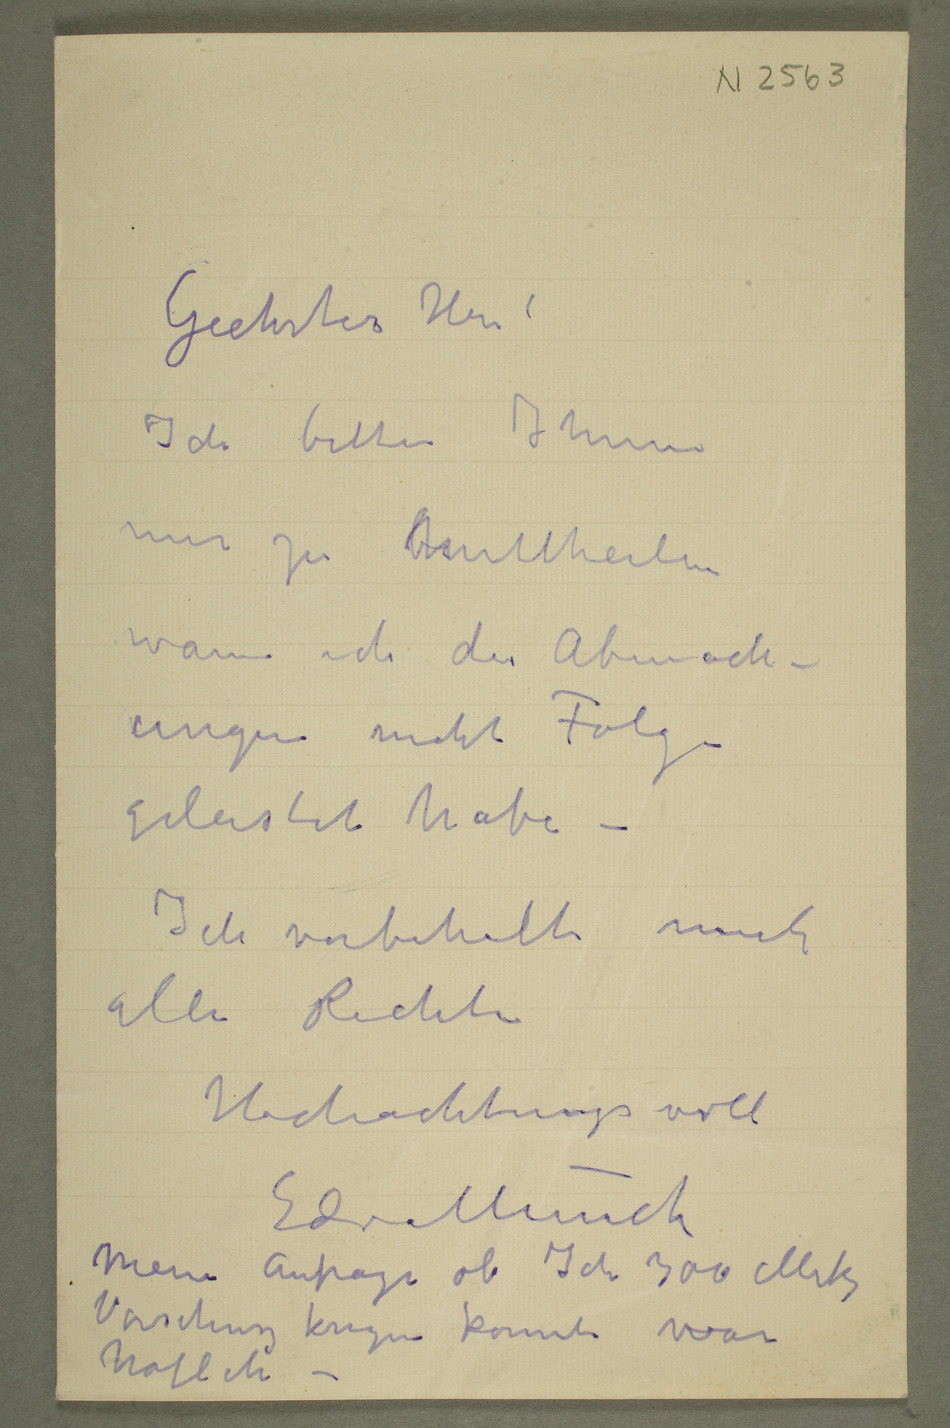 N 2563
Geehrter Herr!
Ich bitte Ihnen
mir zu mittheilen
wann ich die Abmach-
ungen nicht Folge
geleistet habe –
Ich vorbehalte mich
alle Rechte
Hochachtungsvoll
Edv. Munch
Meine Anfrage ob Ich 300 Mrk
Vorschuss kriegen konnte war
höflich –